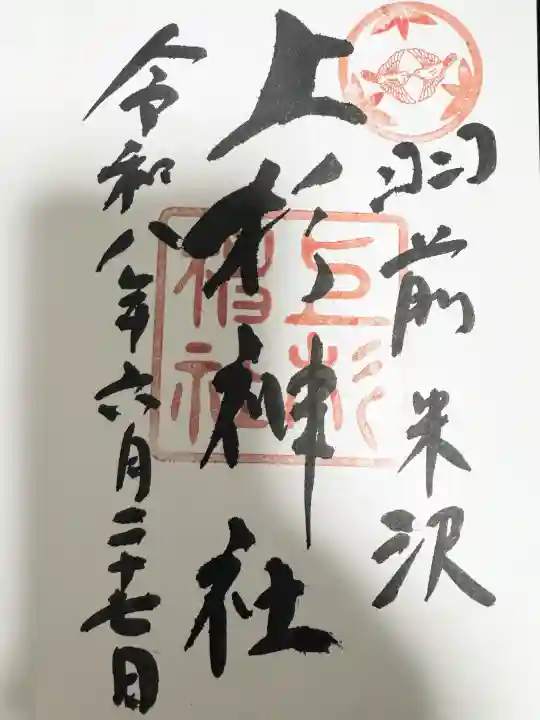 羽前米沢
上杉神社
上杉神社
令和八年六月二十七日